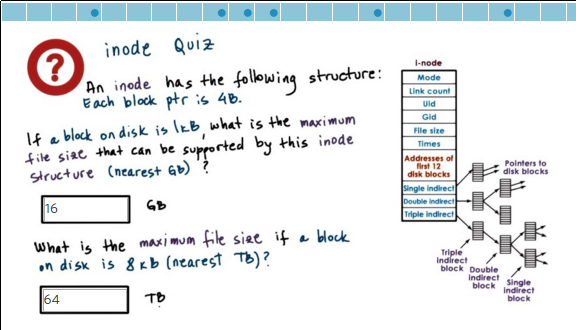 ?
inode Quiz
An inode has the following structure:
Each block ptr is 4B.
If a block on disk is 1kB, what is the maximum
file size that can be supported by this inode
structure (nearest GB)?
16 GB
What is the maximum file size if a block
on disk is 8kB (nearest TB)?
64 TB
i-node
Mode
Link count
Uid
Gid
File size
Times
Addresses of
first 12
disk blocks
Single indirect
Double indirect
Triple indirect
Pointers to
disk blocks
Triple
indirect
block
Double
indirect
block
Single
indirect
block